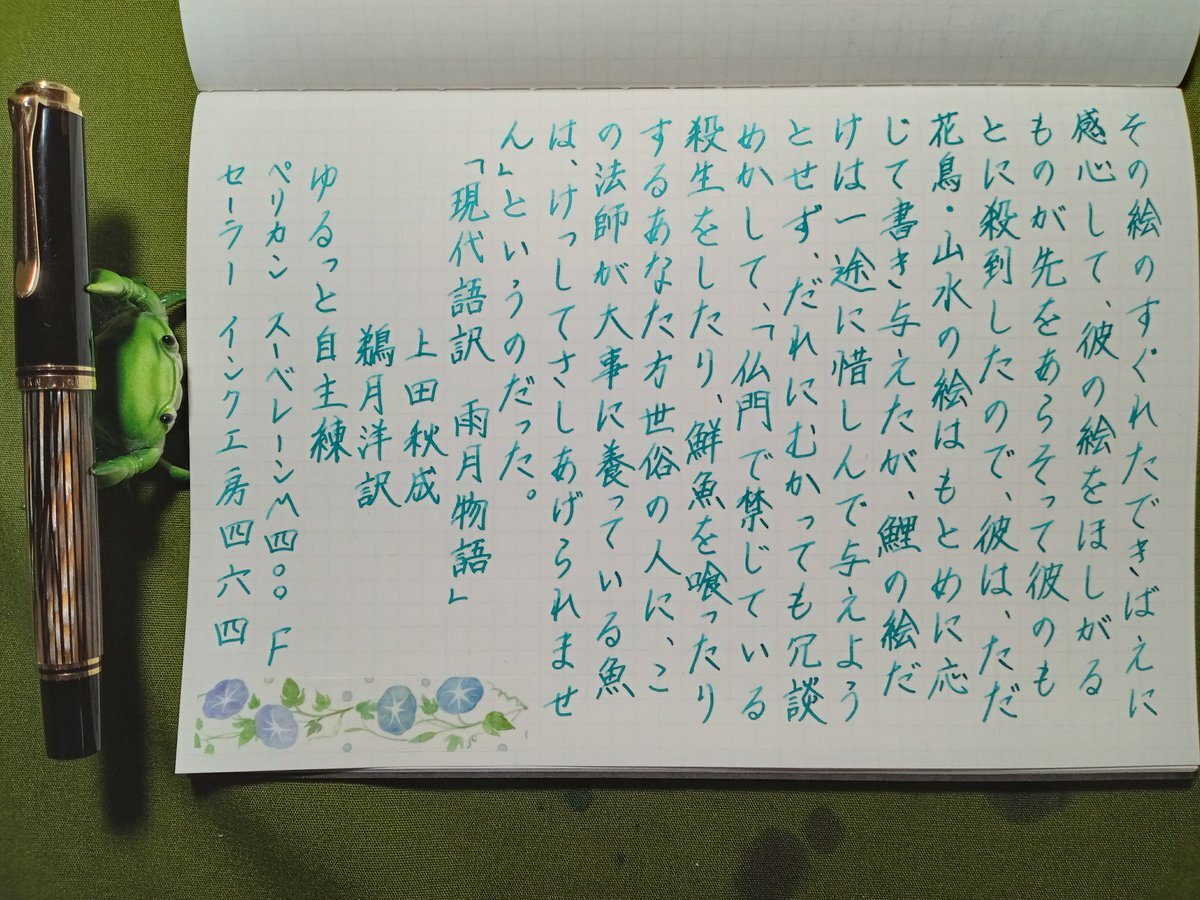 その絵のすぐれたできばえに
感心して、彼の絵をほしがる
ものが先をあらそって彼のも
とに殺到したので、彼は、ただ
花鳥・山水の絵はもとめに応
じて書き与えたが、鯉の絵だ
けは一途に惜しんで与えよう
とせず、だれにむかっても冗談
めかして、「仏門で禁じている
殺生をしたり、鮮魚を喰ったり
するあなた方世俗の人に、こ
の法師が大事に養っている魚
は、けっしてさしあげられませ
ん」というのだった。
「現代語訳 雨月物語」
上田秋成
鵜月洋訳
ゆるっと自主練
ペリカン スーベレーンM四〇〇 F
セーラー インク工房四六四